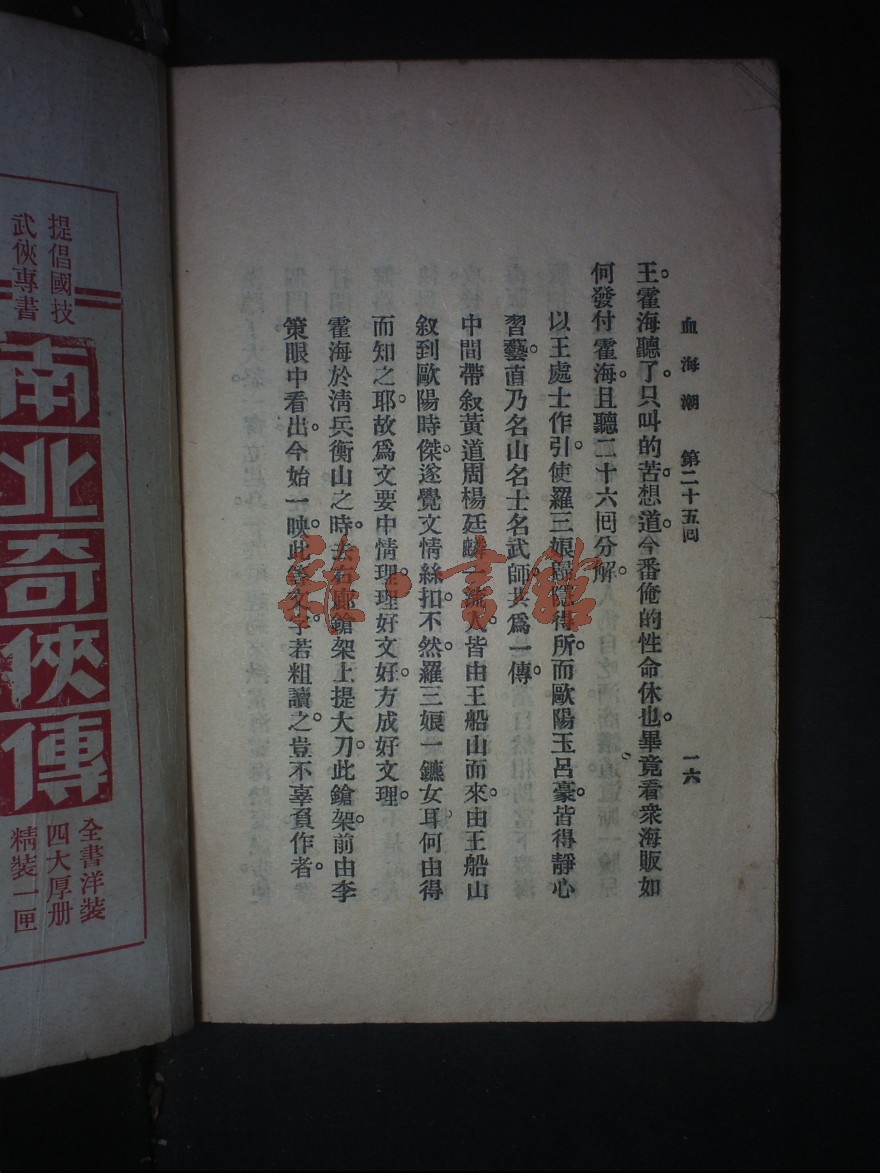 血海潮 第二十五囘 一六
王。霍海聽了。只叫的苦。想道。今番俺的性命休也。畢竟看衆海販如
何發付霍海。且聽二十六囘分解。
以王處士作引。使羅三娘歸隱得所。而歐陽玉呂豪。皆得靜心
習藝。直乃名山名士名武師。共爲一傳。
中間帶叙黃道周楊廷麟一流人。皆由王船山而來。由王船山
叙到歐陽時傑。遂覺文情絲扣。不然羅三娘一鑣女耳。何由得
而知之耶。故爲文要中情理。理好文好。方成好文理。
霍海於淸兵衡山之時。去右廊鎗架上提大刀。此鎗架前由李
策眼中看出。今始一映。此等文字。若粗讀之。豈不辜負作者。
提倡國技
武俠專書
南北奇俠傳
全書洋裝
四大厚册
精裝一匣
雜·書館